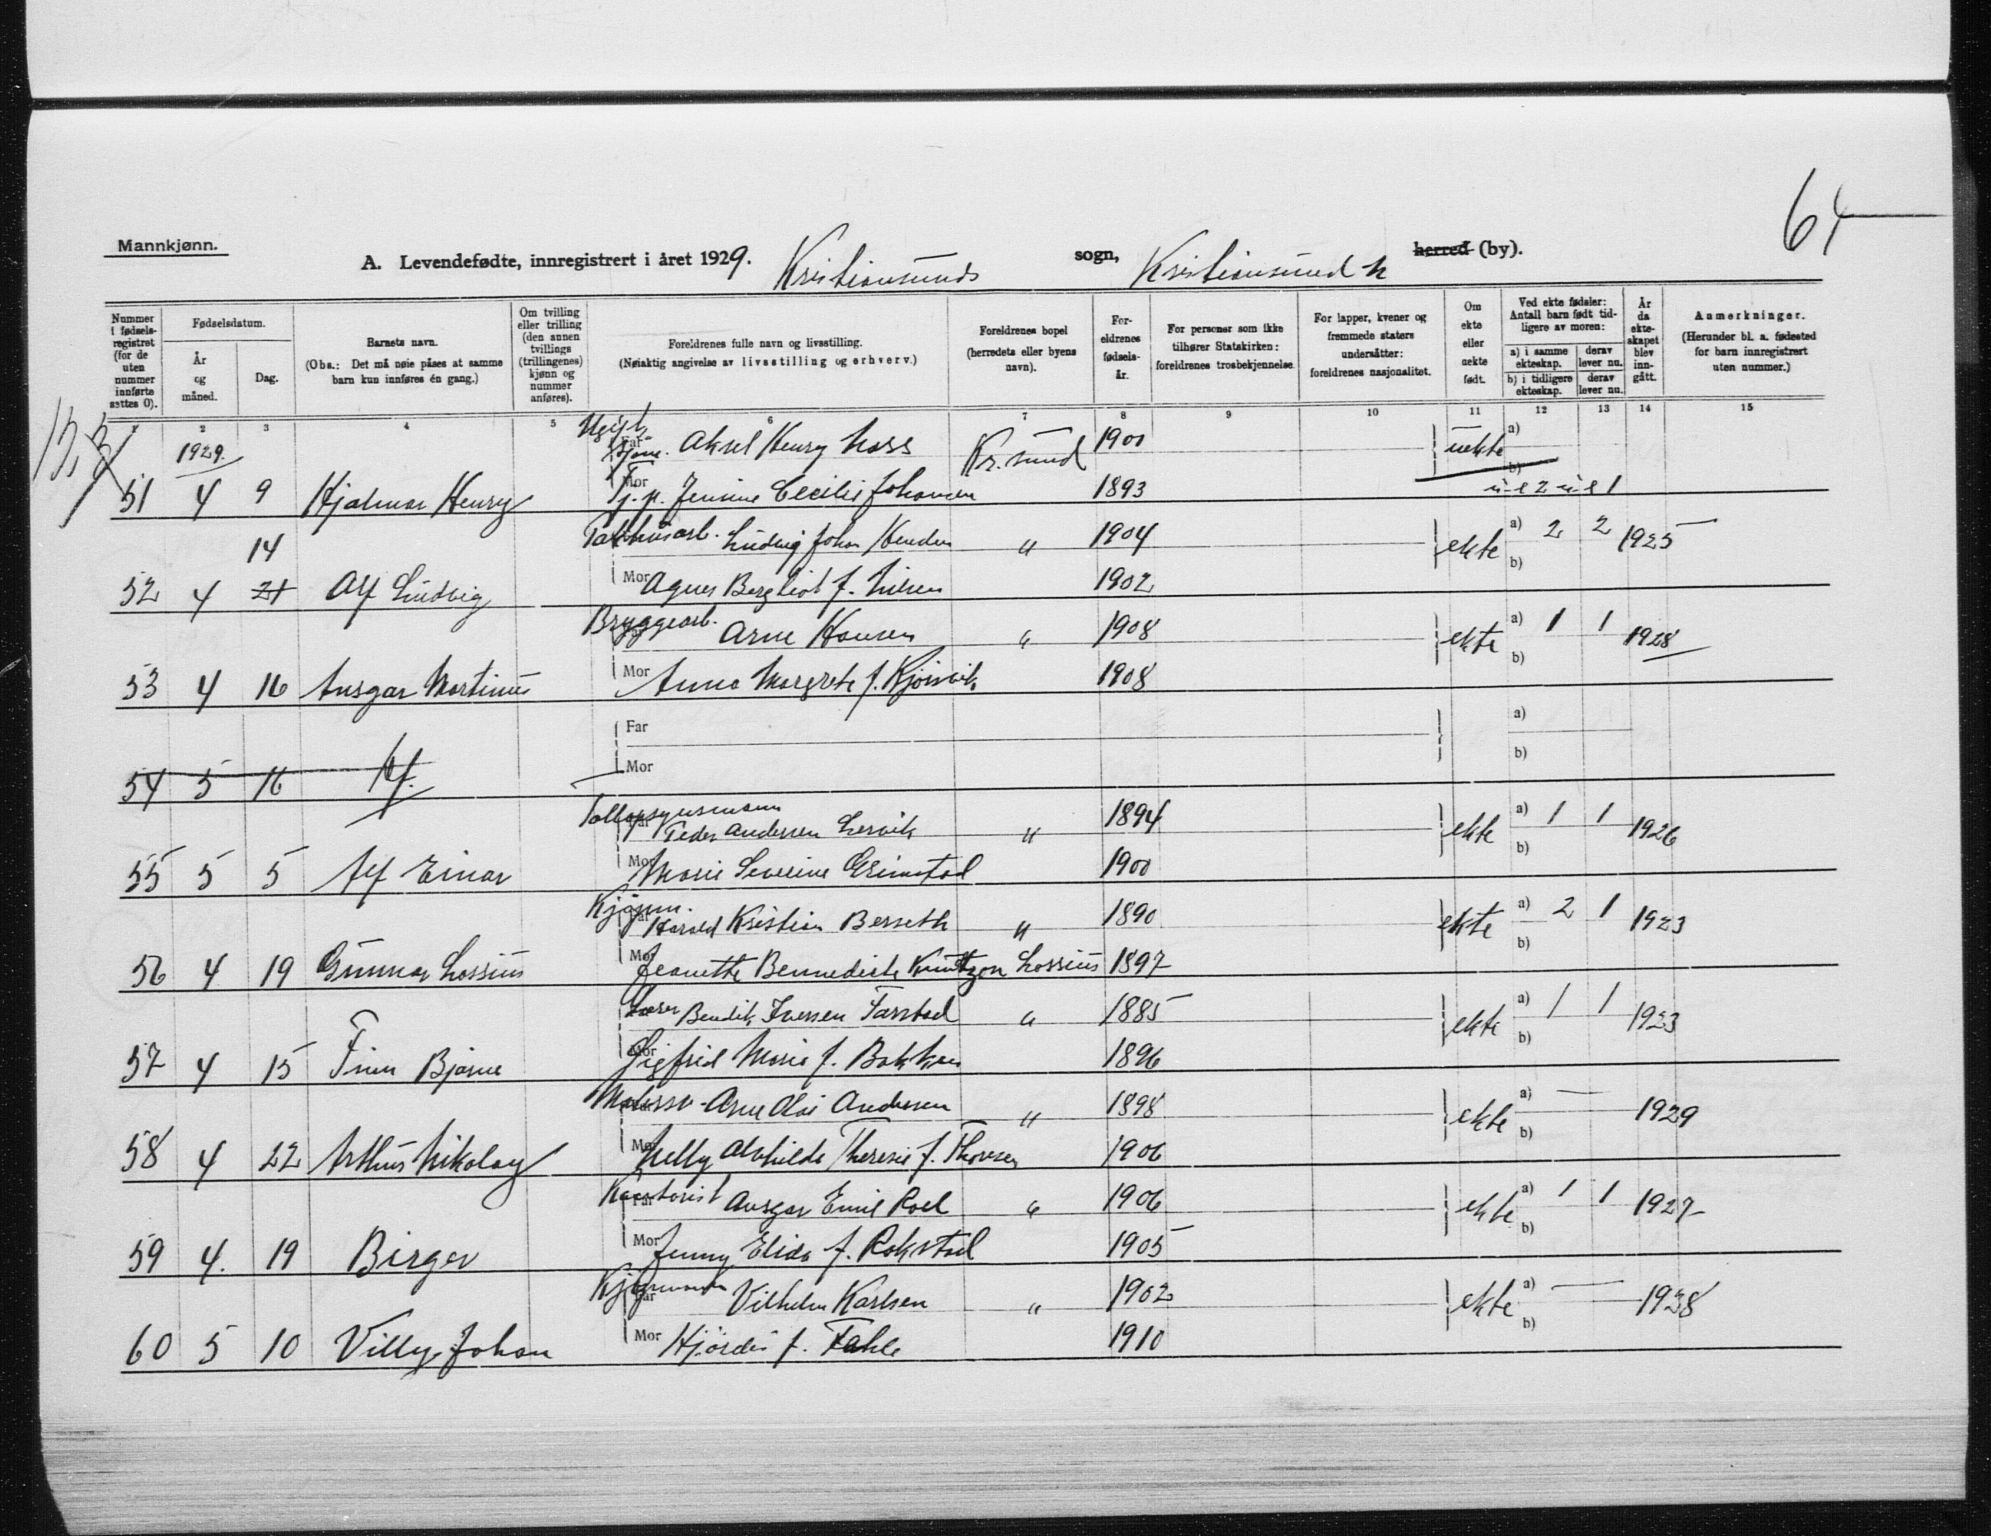 64
Mannkjønn.
A. Levendefødte, innregistrert i året 1929. Kristiansunds sogn, Kristiansund N herred (by).
Nummer i fødselsregistret (for de uten nummer innførte settes 0).
Fødselsdatum.
År og måned.
Dag.
Barnets navn.
(Obs.: Det må nøie påses at samme barn kun innføres én gang.)
Om tvilling eller trilling (den annen tvillings (trillingenes) kjønn og nummer anføres).
Foreldrenes fulle navn og livsstilling.
(Nøiaktig angivelse av livsstilling og erhverv.)
Foreldrenes bopel (herredets eller byens navn).
Foreldrenes fødselsår.
For personer som ikke tilhører Statskirken: foreldrenes trosbekjennelse.
For lapper, kvener og fremmede staters undersåtter: foreldrenes nasjonalitet.
Om ekte eller uekte født.
Ved ekte fødsler: Antall barn født tidligere av moren:
a) i samme ekteskap. derav lever nu.
b) i tidligere ekteskap. derav lever nu.
År da ekteskapet blev inngått.
Anmerkninger.
(Herunder bl. a. fødested for barn innregistrert uten nummer.)
1 2 3 4 5 6 7 8 9 10 11 12 13 14 15
1929. Far Aksel Henry Kr.sund 1900 uekte a)
b)
51 4 9 Hjalmar Henry Mor Jennine Cecilie Johansen 1893 u e 2 u e 1
14 Ludvig Johan " 1904 ekte a) 2 2 1925
b)
52 4 21 Alf Ludvig Mor Agnes Bergliot f. Nilsen 1902
Bryggearb. Arne Hansen " 1908 ekte a) 1 1 1928
b)
53 4 16 Ansgar Martinus Mor Anna Margrete f. 1908
Far a)
Mor b)
54 5 16
Far Peder Andersen Lervik " 1894 ekte a) 1 1 1926
b)
55 5 5 Alf Einar Mor Marie Severine Grimstad 1900
Kjøpm. Far Harald Kristian Berseth " 1890 ekte a) 2 1 1923
b)
56 4 19 Gunnar Lossius Mor Jeanette Bennedicte Knudtzon Lossius 1897
Bendik Iversen Farstad " 1885 ekte a) 1 1 1923
b)
57 4 15 Finn Bjarne Mor Sigfrid Marie f. Bakken 1896
Arne Olai Andresen " 1898 ekte a) — 1929
b)
58 4 22 Arthur Nikolay Mor Nelly Alvhilde Therese f. Thorsen 1906
Kontorist Far Ansgar Emil Roel " 1906 ekte a) 1 1 1927
b)
59 4. 19 Birger Mor Jenny Elida f. Rokstad 1905
Kjøpmann Far Vilhelm Karlsen " 1902 ekte a) — 1928
b)
60 5 10 Villy Johan Mor Hjördis f. Fahle 1910